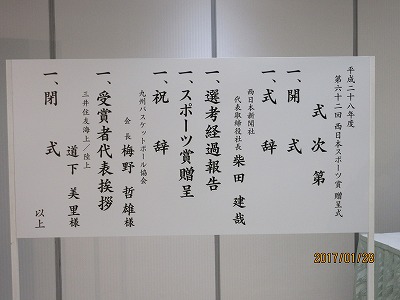 平成二十八年度
第六十二回 西日本スポーツ賞 贈呈式
式次第
一、開式
一、式辞
西日本新聞社
代表取締役社長 柴田建哉
一、選考経過報告
一、スポーツ賞贈呈
一、祝辞
九州バスケットボール協会
会長 梅野哲雄様
一、受賞者代表挨拶
三井住友海上/陸上
道下美里様
一、閉式
以上
2017/01/28